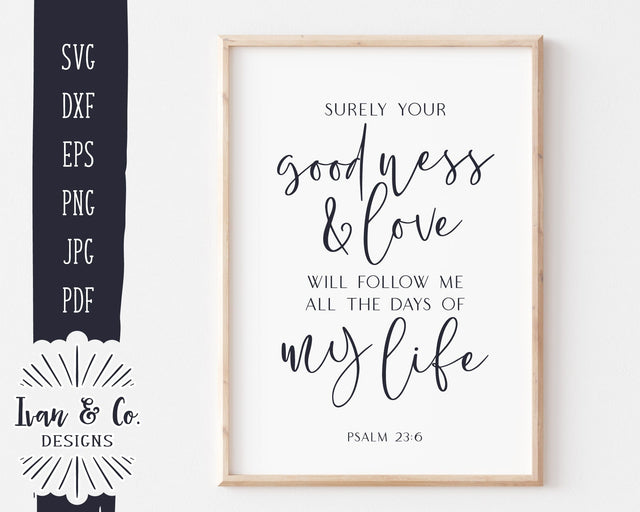 SVG
DXF
EPS
PNG
JPG
PDF
Ivan & Co.
DESIGNS
SURELY YOUR
goodness
& love
WILL FOLLOW ME
ALL THE DAYS OF
my life
PSALM 23:6